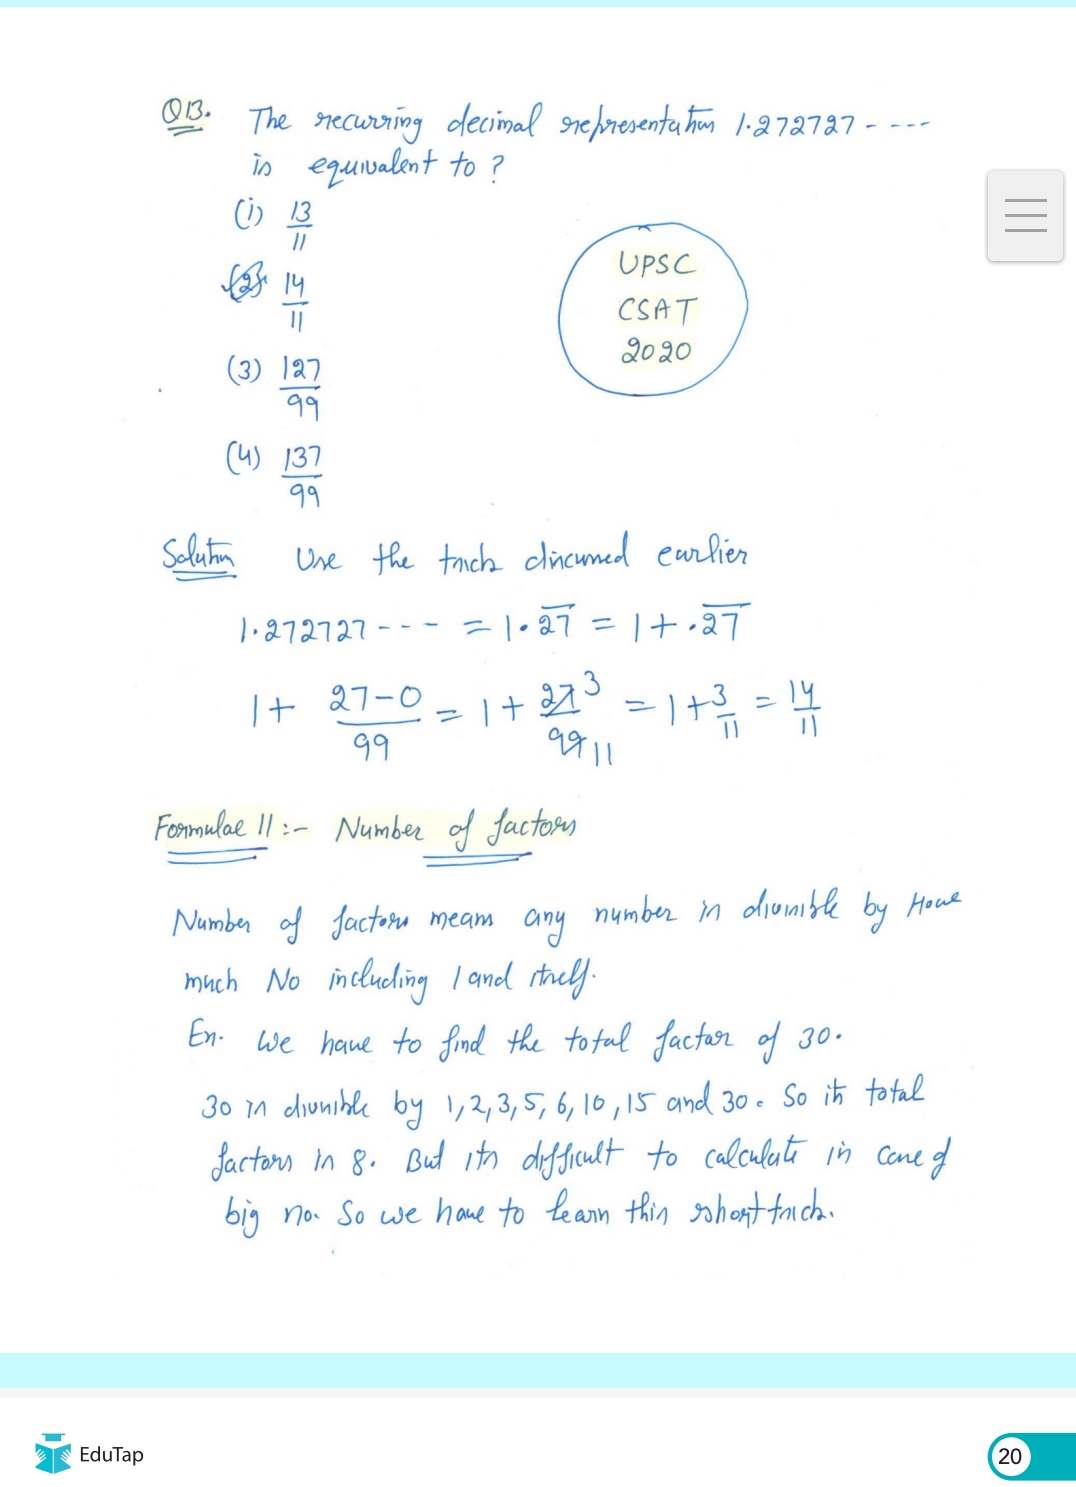 Q13. The recurring decimal representation 1.272727 - ---
is equivalent to ?
(1) 13/11
(2) 14/11
(3) 127/99
(4) 137/99
UPSC
CSAT
2020
Solution Use the trick discussed earlier
1.272727 - - - = 1.2̅7̅ = 1 + .2̅7̅
1 + 27-0/99 = 1 + 27/99 3/11 = 1 + 3/11 = 14/11
Formulae 11 :- Number of factors
Number of factors means any number is divisible by How
much No including 1 and itself.
Ex. We have to find the total factor of 30.
30 is divisible by 1, 2, 3, 5, 6, 10, 15 and 30. So its total
factors is 8. But its difficult to calculate in case of
big no. So we have to learn this short trick.
EduTap
20